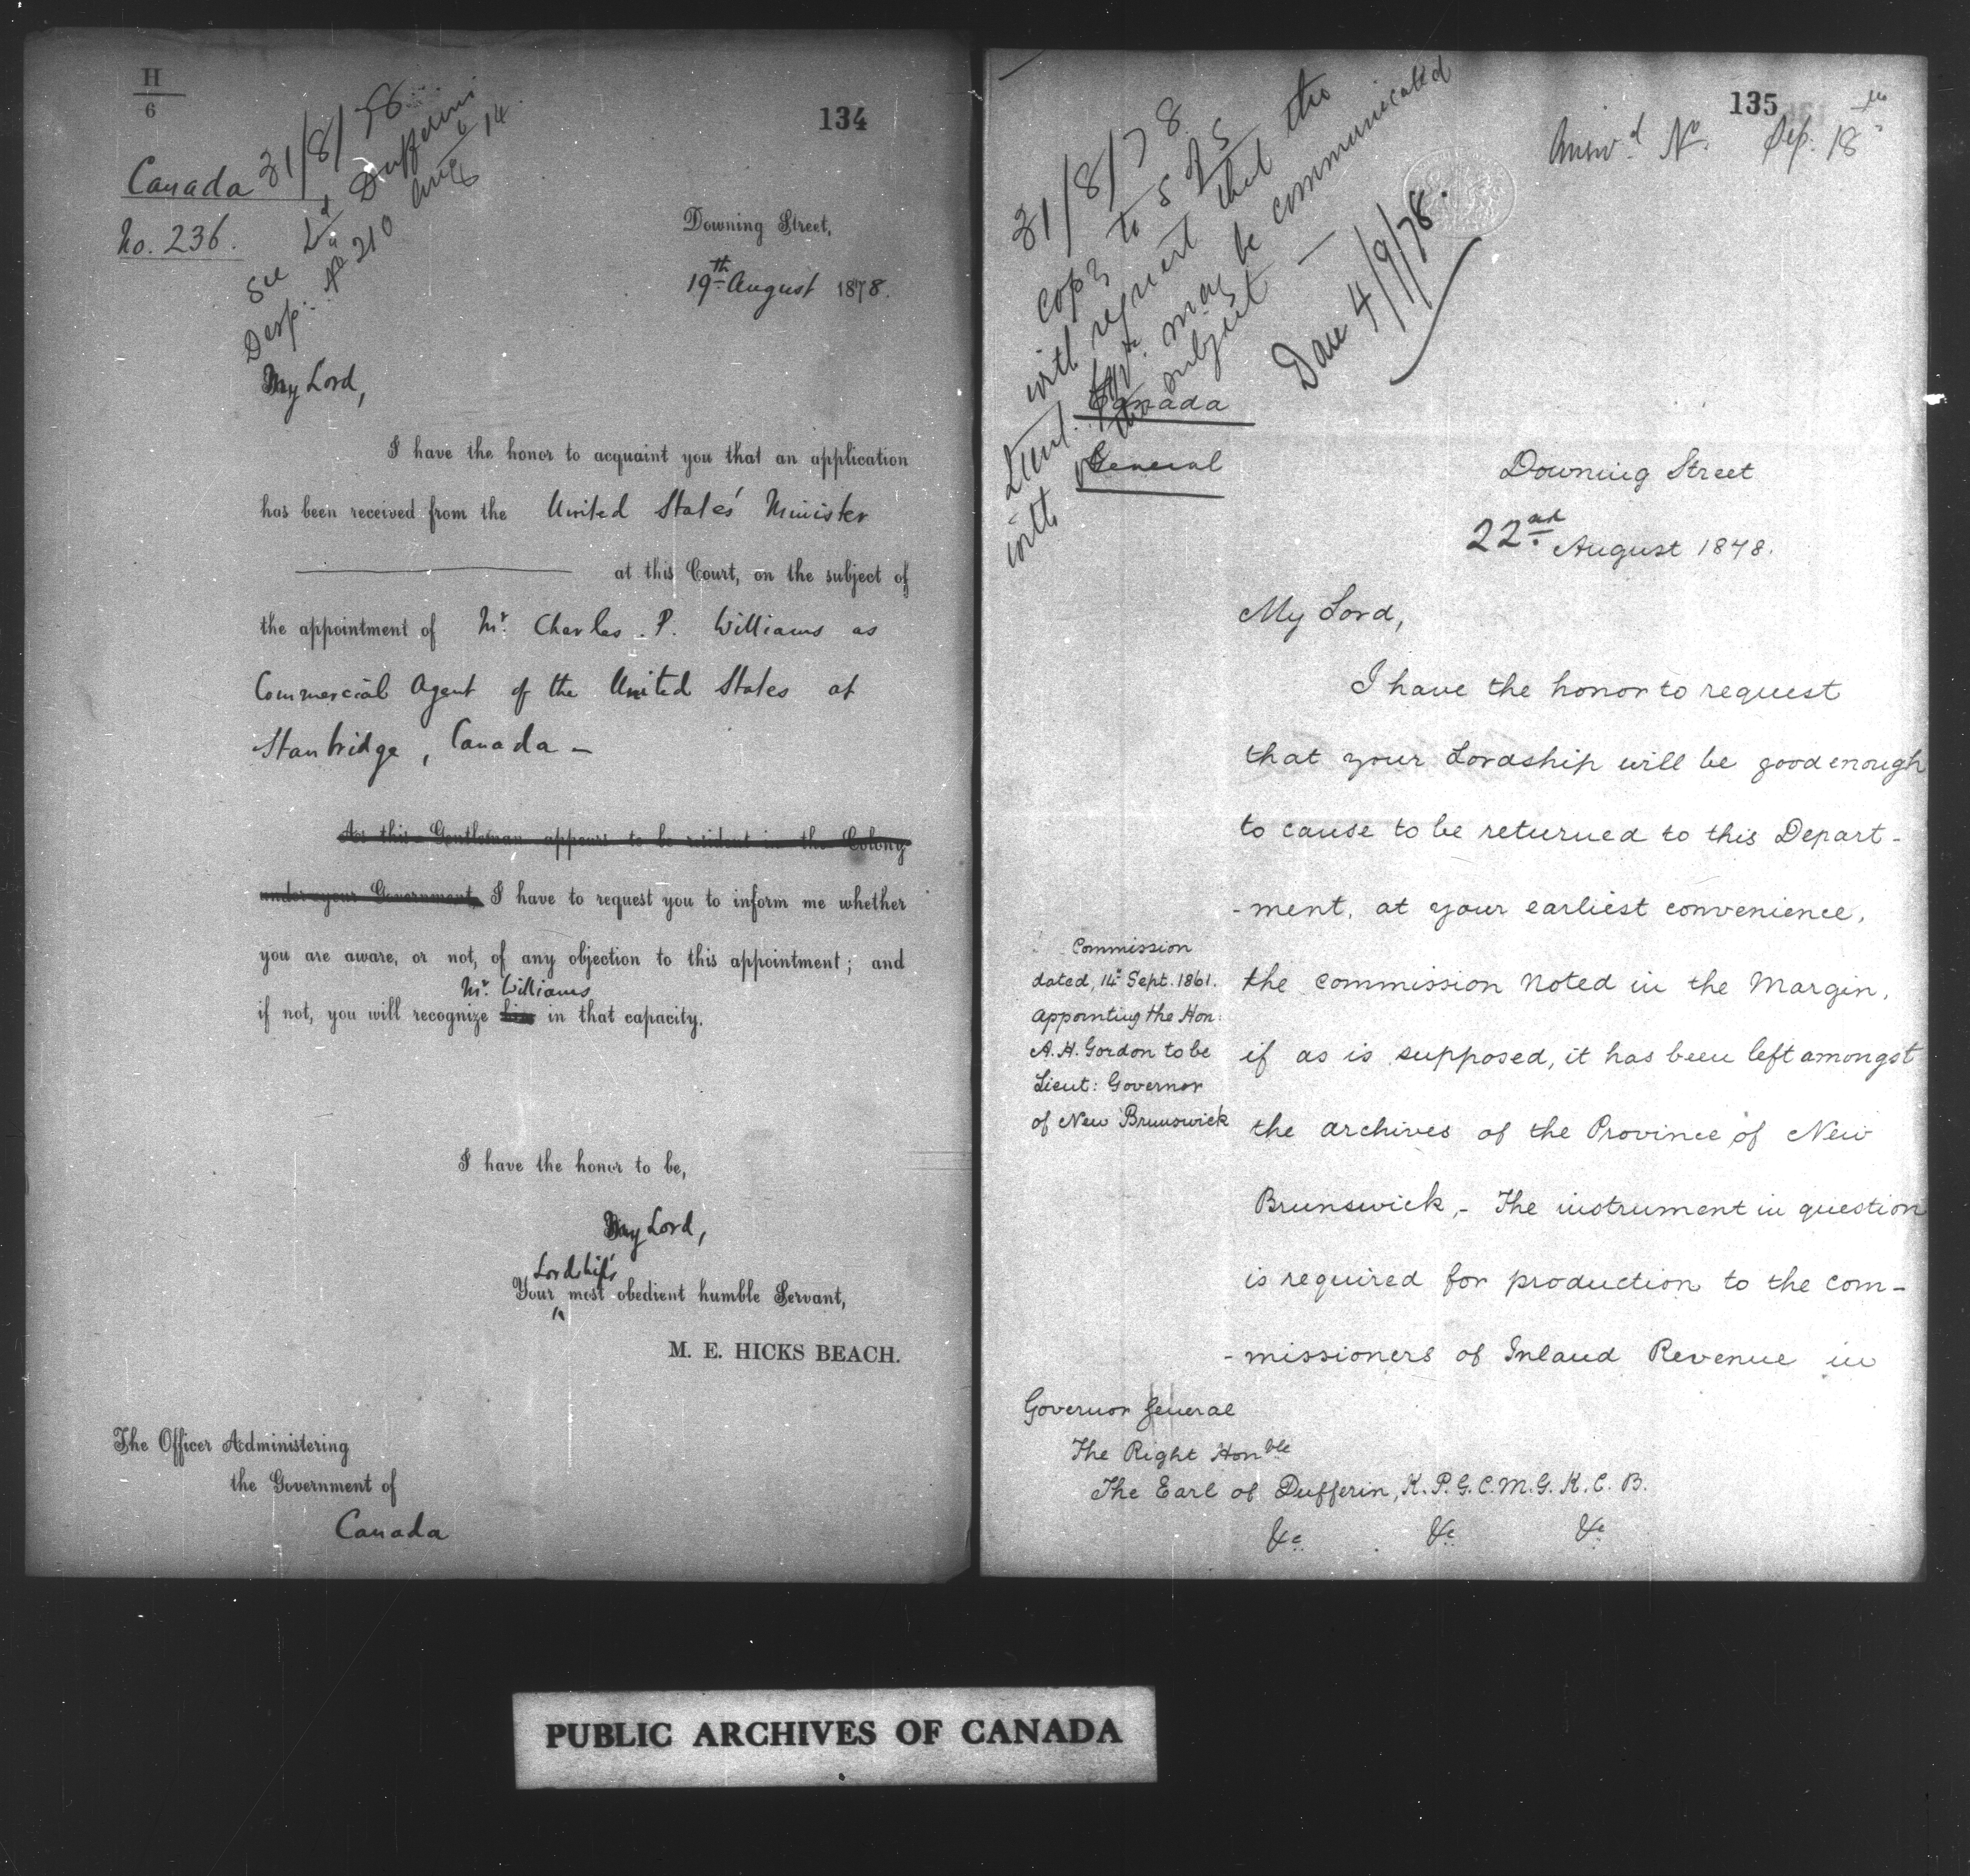 H
6
134
Canada
No. 236.
31/8/78
See Ld Dufferin's
Desp: No 210 Aug 14
Downing Street,
19th August 1878.
My Lord,
I have the honor to acquaint you that an application
has been received from the United States' Minister
at this Court, on the subject of
the appointment of Mr. Charles P. Williams as
Commercial Agent of the United States at
Stanbridge, Canada —
As this Gentleman appears to be resident in the Colony
under your Government, I have to request you to inform me whether
you are aware, or not, of any objection to this appointment; and
Mr. Williams
if not, you will recognize him in that capacity.
I have the honor to be,
My Lord,
Lordship's
Your most obedient humble Servant,
M. E. HICKS BEACH.
The Officer Administering
the Government of
Canada
135
Answd. No. Sep. 18th
31/8/78
Copy to S of S
with request that the
Lieut. Govr. may be communicated
with on the subject —
Done 4/9/78.
Canada
General
Downing Street
22nd August 1878.
My Lord,
I have the honor to request
that your Lordship will be good enough
to cause to be returned to this Depart-
-ment, at your earliest convenience,
the commission noted in the Margin,
if as is supposed, it has been left amongst
the archives of the Province of New
Brunswick,- The instrument in question
is required for production to the com-
-missioners of Inland Revenue in
Commission
dated, 14th Sept. 1861.
appointing the Hon:
A. H. Gordon to be
Lieut: Governor
of New Brunswick
Governor General
The Right Honble
The Earl of Dufferin, K. P. G. C. M. G. K. C. B.
&c. &c. &c.
PUBLIC ARCHIVES OF CANADA